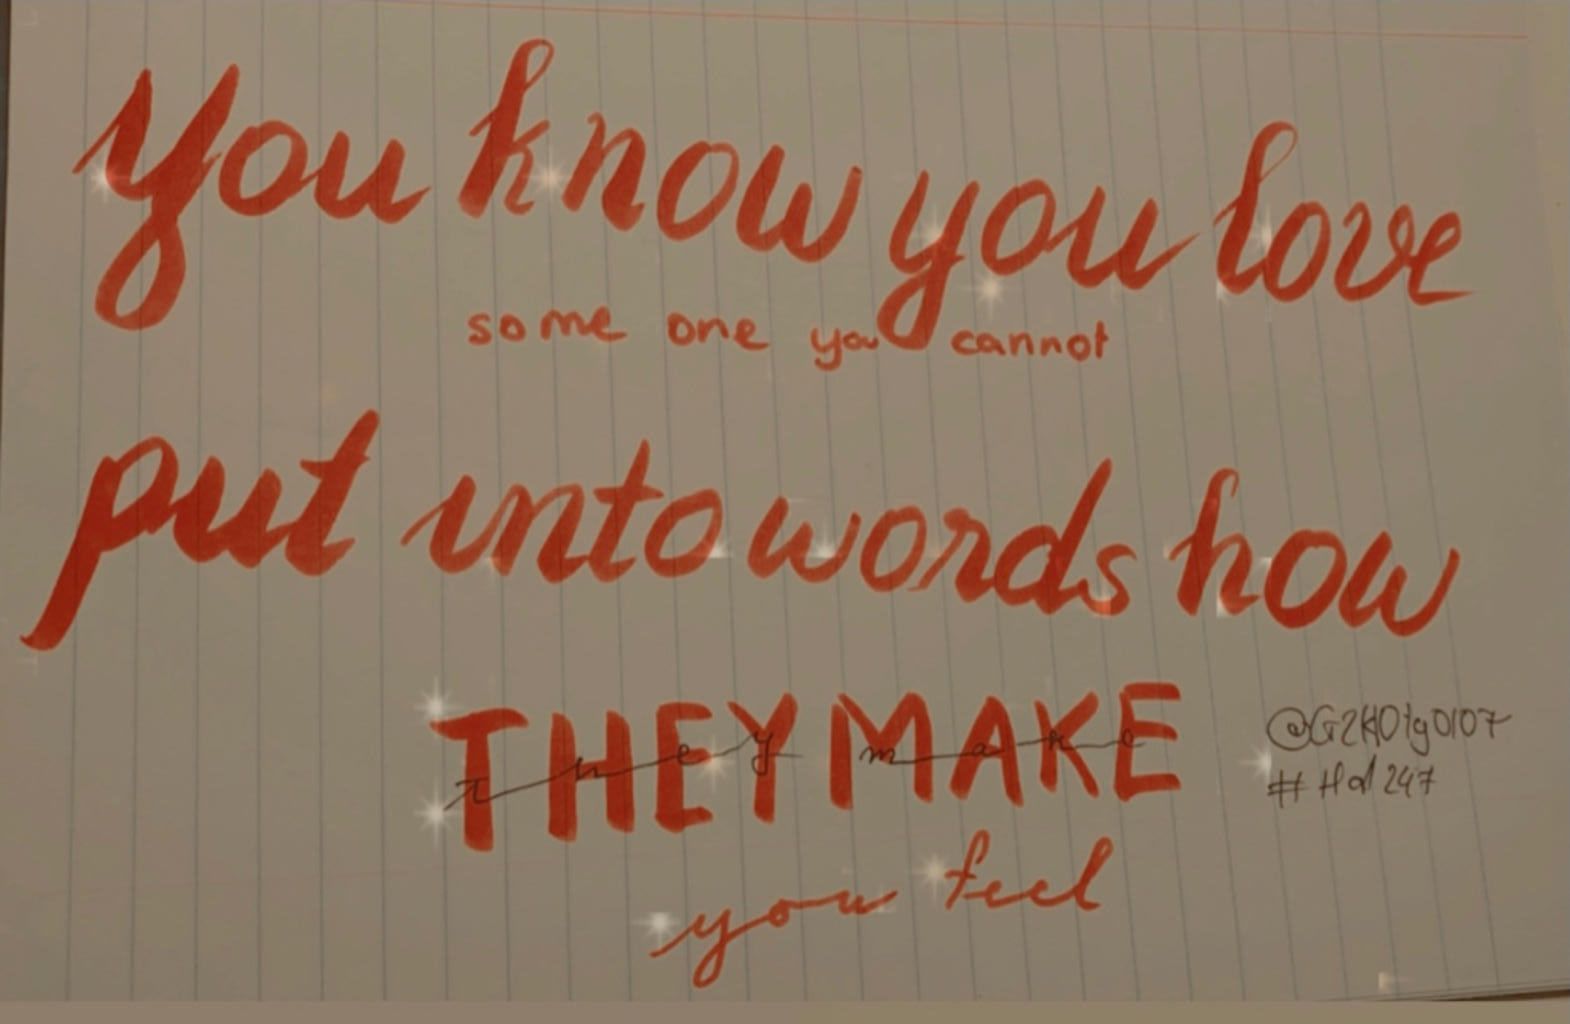 You know you love
some one you cannot
put into words how
THEY MAKE
they make
you feel
@G2HOtg0107
#Hd247